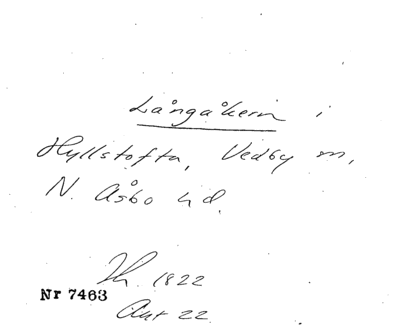 Långåkern i
Hyllstofta, Vedby m,
N. Åsbo hd.
Th. 1822
Nr 7463
Akt 22